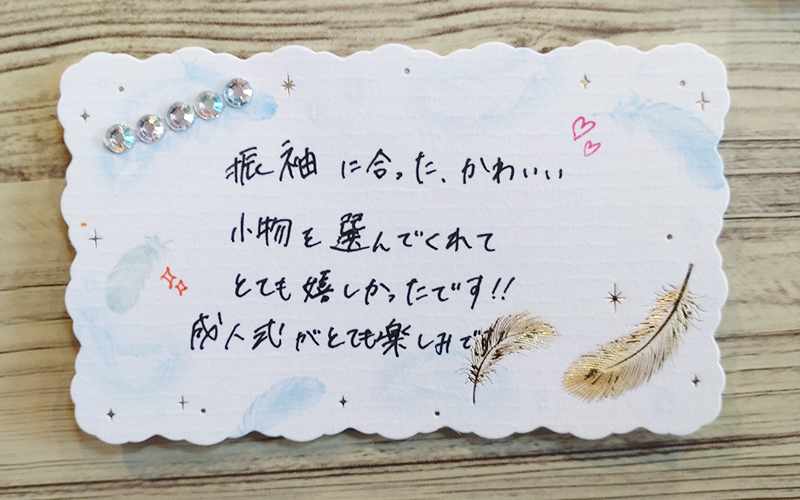 振袖に合った、かわいい
小物を選んでくれて
とても嬉しかったです!!
成人式がとても楽しみで